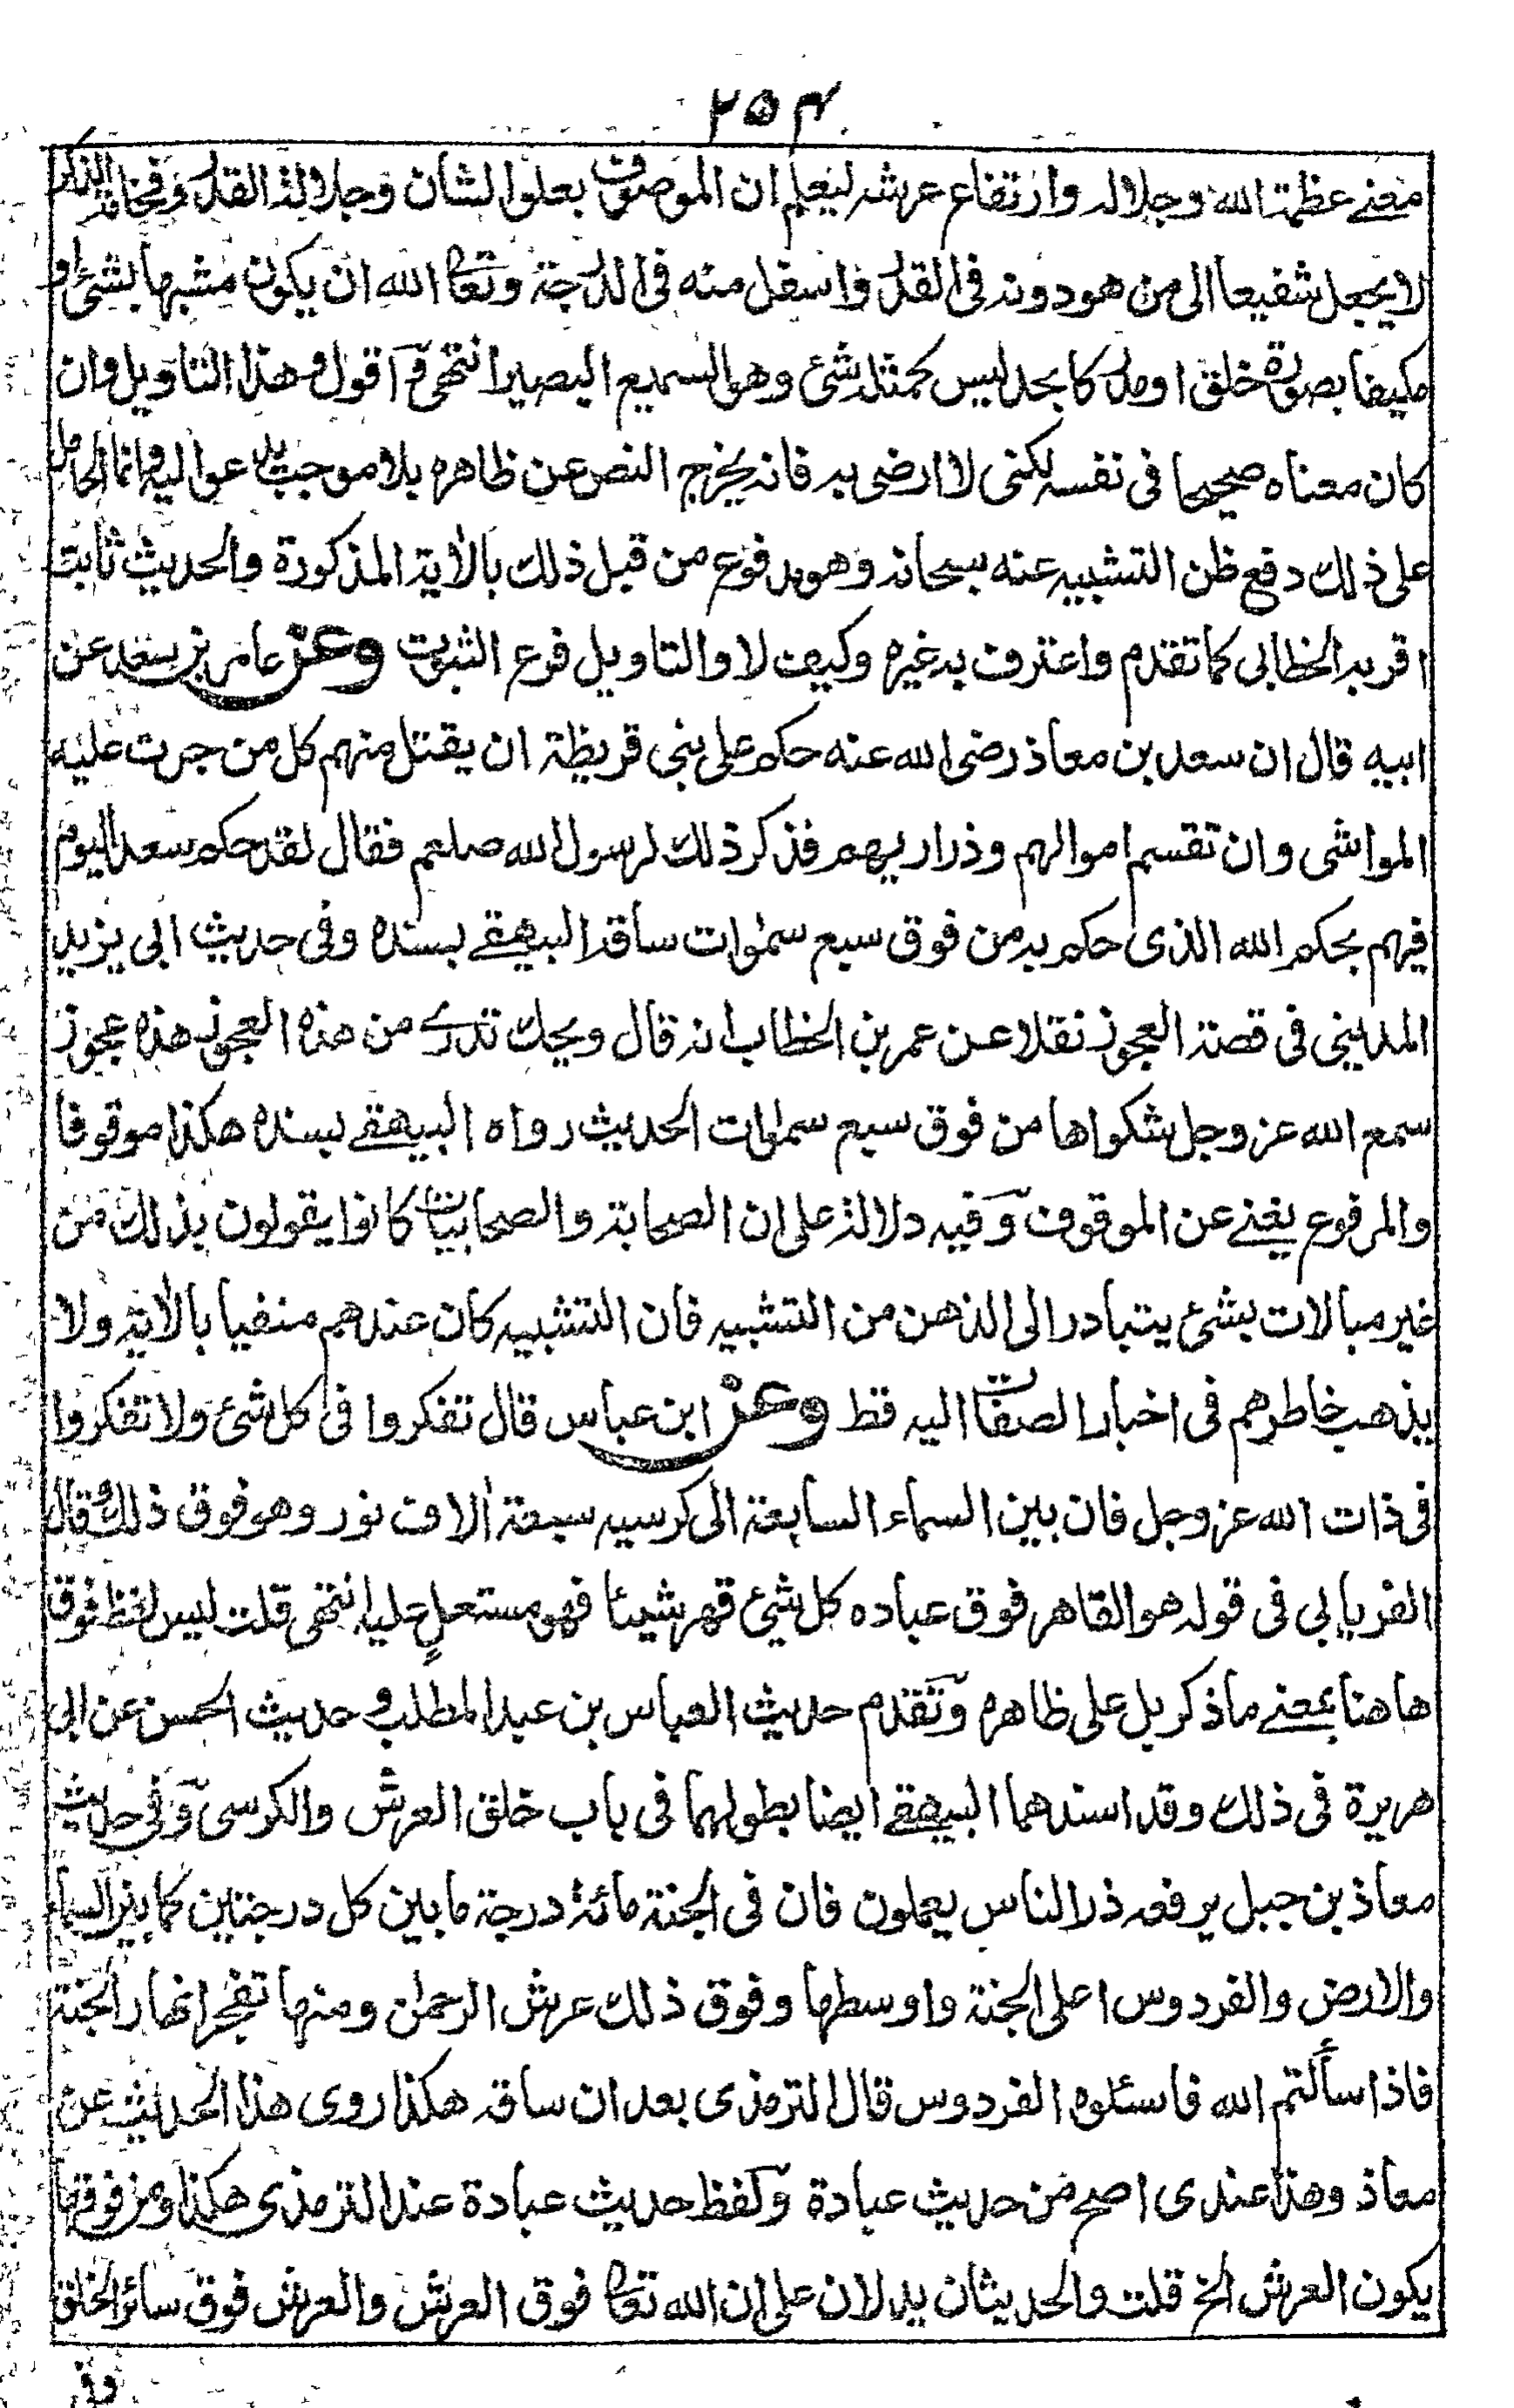 ٢٥٤
معنے عظمة الله وجلاله وارتفاع عرشه ليعلم ان الموصوف بعلو الشان وجلالة القدر وفخامة الذكر
لا يجعل شفيعا الى من هو دونه فى القدر واسفل منه فى الدرجة وتعالى الله ان يكون مشبها بشئ او
مكيفا بصورة خلق او مدركا بحد ليس كمثله شئ وهو السميع البصير انتهى اقول وهذا التاويل وان
كان معناه صحيحا فى نفسه لكنى لا ارضى به فانه يخرج النص عن ظاهره بلا موجب يدعو اليه وانما الحامل
على ذلك دفع ظن التشبيه عنه سبحانه وهو مدفوع من قبل ذلك بالاٰية المذكورة والحديث ثابت
اقر به الخطابى كما تقدم واعترف به غيره وكيف لا والتاويل فرع الثبوت وعن عامر بن سعد عن
ابيه قال ان سعد بن معاذ رضى الله عنه حكم على بنى قريظة ان يقتل منهم كل من جرت عليه
المواشى وان تقسم اموالهم وذراريهم فذكر ذلك لرسول الله صلعم فقال لقد حكم سعد اليوم
فيهم بحكم الله الذى حكم به من فوق سبع سمٰوات ساقه البيهقے بسنده وفى حديث ابى يزيد
المدينى فى قصة العجوز نقلا عن عمر بن الخطاب انه قال ويحك تدرے من هذه العجوز هذه عجوز
سمع الله عز وجل شكواها من فوق سبع سمٰوات الحديث رواه البيهقے بسنده هكذا موقوفا
والمرفوع يغنے عن الموقوف وفيه دلالة على ان الصحابة والصحابيات كانوا يقولون بذلك من
غير مبالات بشئ يتبادر الى الذهن من التشبيه فان التشبيه كان عندهم منفيا بالاٰية ولا
يذهب خاطرهم فى اخبار الصفات اليه قط وعن ابن عباس قال تفكروا فى كل شئ ولا تفكروا
فى ذات الله عز وجل فان بين السماء السابعة الى كرسيه سبعة اٰلاف نور وهو فوق ذلك وقال
الفريابى فى قوله هو القاهر فوق عباده كل شئ قهر شيئا فهو مستعلٍ عليه انتهى قلت ليس لفظ فوق
هاهنا بمعنے ما ذكر بل على ظاهره وتقدم حديث العباس بن عبد المطلب وحديث الحسن عن ابى
هريرة فى ذلك وقد اسندهما البيهقے ايضا بطولهما فى باب خلق العرش والكرسى وفى حديث
معاذ بن جبل يرفعه ذر الناس يعملون فان فى الجنة مائة درجة ما بين كل درجتين كما بين السماء
والارض والفردوس اعلى الجنة واوسطها وفوق ذلك عرش الرحمٰن ومنها تفجر انهار الجنة
فاذا سألتم الله فاسئلوه الفردوس قال الترمذى بعد ان ساقه هكذا روى هذا الحديث عن
معاذ وهذا عندى اصح من حديث عبادة ولفظ حديث عبادة عند الترمذى هكذا ومن فوقها
يكون العرش الخ قلت والحديثان يدلان على ان الله تعالى فوق العرش والعرش فوق سائر الخلق
وفى